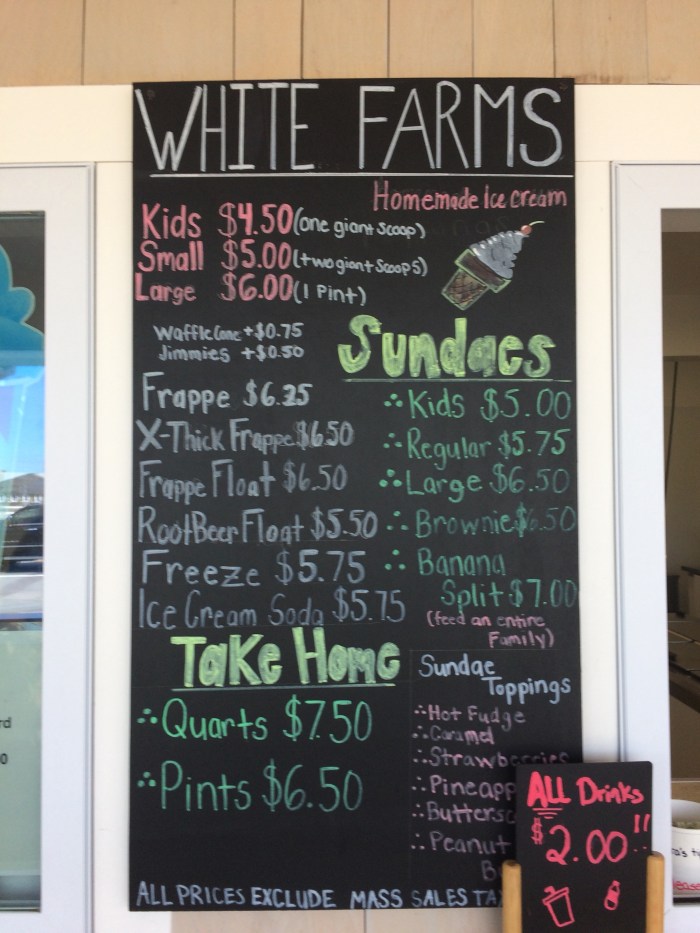 WHITE FARMS
Homemade Ice cream
Kids $4.50 (one giant scoop)
Small $5.00 (two giant scoops)
Large $6.00 (1 Pint)
Waffle Cone +$0.75
Jimmies +$0.50
Frappe $6.25
X-Thick Frappe $6.50
Frappe Float $6.50
RootBeer Float $5.50
Freeze $5.75
Ice Cream Soda $5.75
Sundaes
Kids $5.00
Regular $5.75
Large $6.50
Brownie $6.50
Banana
Split $7.00
(feed an entire
Family)
Take Home
Quarts $7.50
Pints $6.50
Sundae
Toppings
Hot Fudge
Caramel
Strawberries
Pineapp
Buttersc
Peanut
B
ALL PRICES EXCLUDE MASS SALES TAX
ALL Drinks
$2.00!!